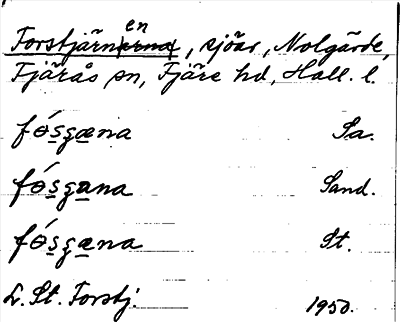 Forstjärnerna en, sjöar, Nolgärde,
Fjärås sn, Fjäre hd, Hall. l.
fósgæna Sa.
fósgana Sand.
fósgæna St.
L. St. Forstj. 1950.